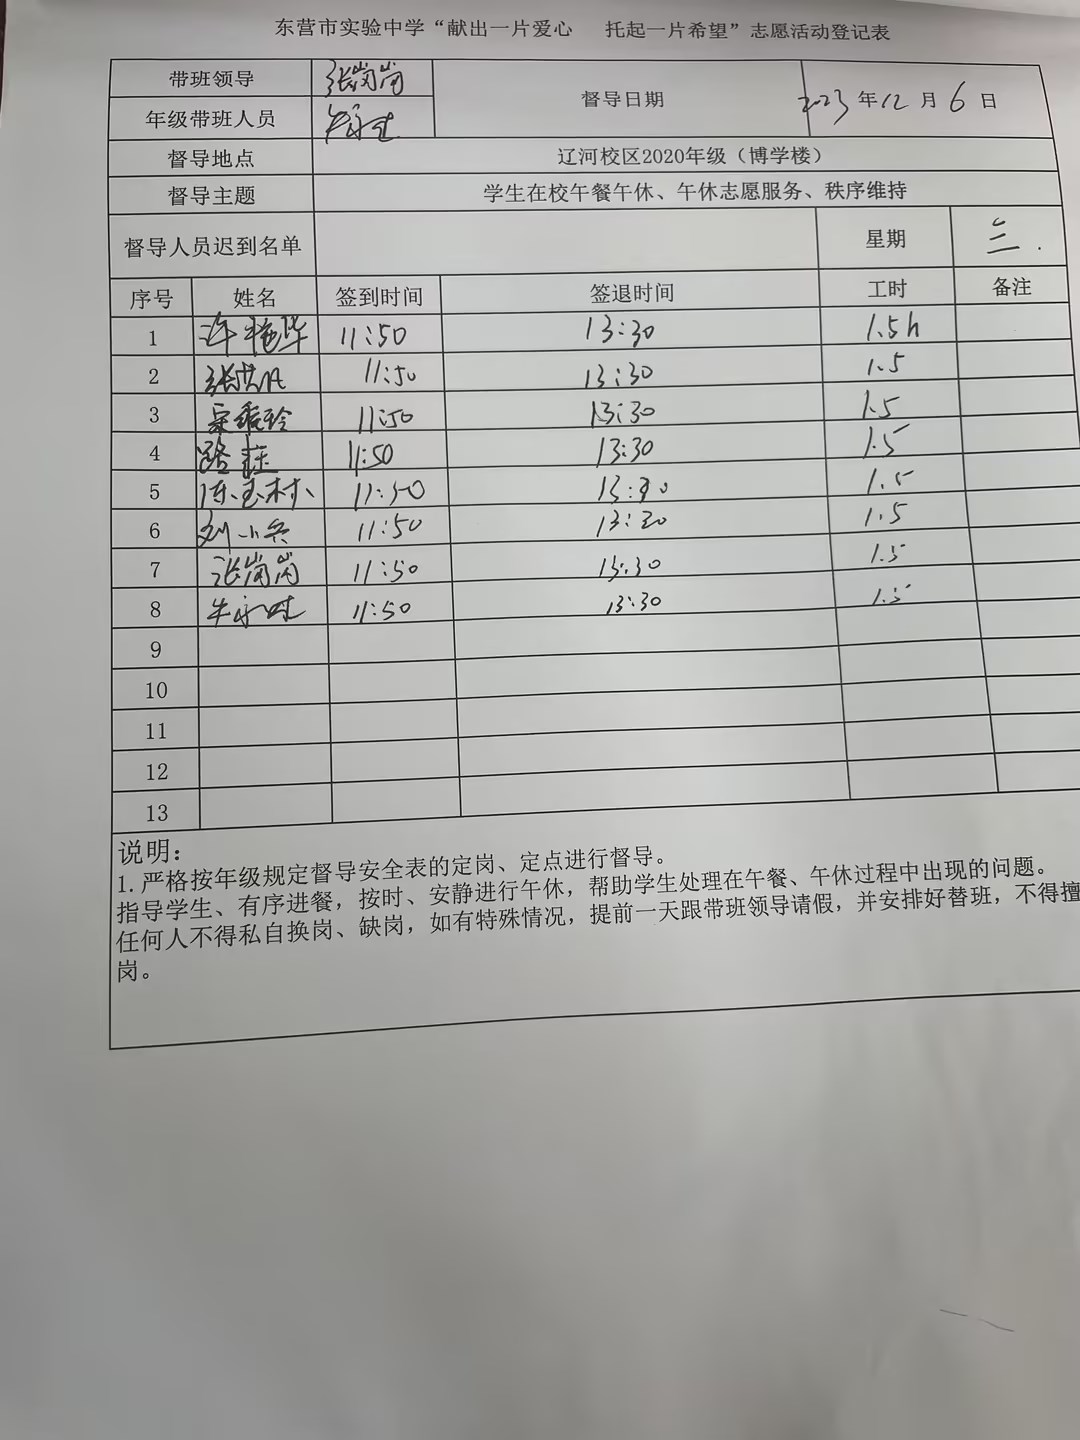 东营市实验中学“献出一片爱心 托起一片希望”志愿活动登记表
带班领导 张岗岗 督导日期 2023年12月6日
年级带班人员
督导地点 辽河校区2020年级（博学楼）
督导主题 学生在校午餐午休、午休志愿服务、秩序维持
督导人员迟到名单 星期 三.
序号 姓名 签到时间 签退时间 工时 备注
1 许艳华 11:50 13:30 1.5h
2 11:50 13:30 1.5
3 11:50 13:30 1.5
4 11:50 13:30 1.5
5 陈玉村 11:50 13:30 1.5
6 刘小兵 11:50 13:30 1.5
7 张岗岗 11:50 13:30 1.5
8 11:50 13:30 1.5
9
10
11
12
13
说明：
1.严格按年级规定督导安全表的定岗、定点进行督导。
指导学生、有序进餐，按时、安静进行午休，帮助学生处理在午餐、午休过程中出现的问题。
任何人不得私自换岗、缺岗，如有特殊情况，提前一天跟带班领导请假，并安排好替班，不得擅
岗。